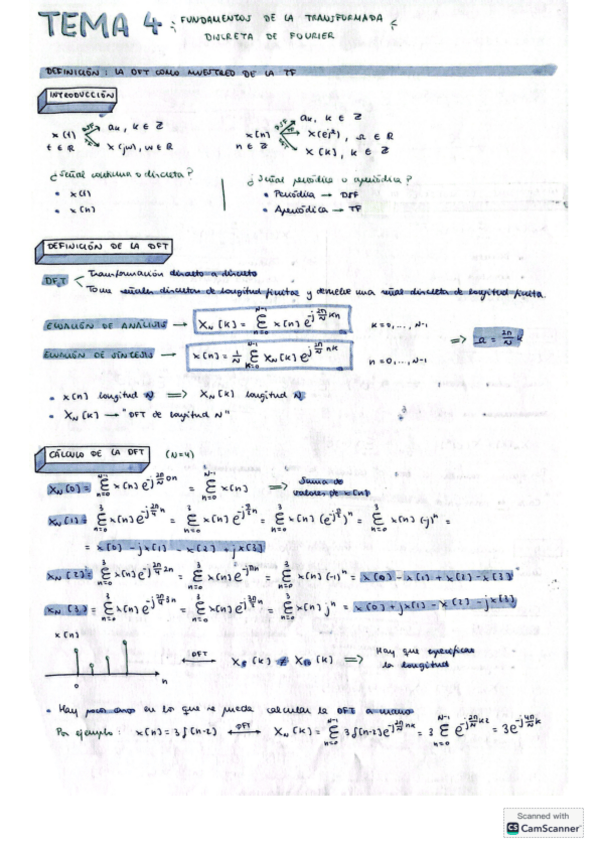 TEMA 4: FUNDAMENTOS DE LA TRANSFORMADA
DISCRETA DE FOURIER
DEFINICIÓN: LA DFT COMO MUESTREO DE LA TF
INTRODUCCIÓN
x(t) ak, k ∈ Z
t ∈ R X(jω), ω ∈ R
x[n] ak, k ∈ Z
n ∈ Z X(e^j), Ω ∈ R
X[k], k ∈ Z
¿Señal continua o discreta?
• x(t)
• x[n]
¿Señal periódica o aperiódica?
• Periódica → DSF
• Aperiódica → TF
DEFINICIÓN DE LA DFT
DFT
Transformación discreto a discreto
Toma señales discretas de longitud finitas y devuelve una señal discreta de longitud finita.
ECUACIÓN DE ANÁLISIS → X_N[k] = Σ_{n=0}^{N-1} x[n] e^{-j 2π/N kn} k=0,...,N-1
⇒ Ω = 2π/N k
ECUACIÓN DE SÍNTESIS → x[n] = 1/N Σ_{k=0}^{N-1} X_N[k] e^{j 2π/N nk} n=0,...,N-1
• x[n] longitud N ⇒ X_N[k] longitud N
• X_N[k] → "DFT de longitud N"
CÁLCULO DE LA DFT (N=4)
X_N[0] = Σ_{n=0}^{N-1} x[n] e^{-j 2π/N 0n} = Σ_{n=0}^{N-1} x[n] ⇒ Suma de
valores de x[n]
X_N[1] = Σ_{n=0}^{3} x[n] e^{-j 2π/4 n} = Σ_{n=0}^{3} x[n] e^{-j π/2 n} = Σ_{n=0}^{3} x[n] (e^{-j π/2})^n = Σ_{n=0}^{3} x[n] (-j)^n =
= x[0] - jx[1] - x[2] + jx[3]
X_N[2] = Σ_{n=0}^{3} x[n] e^{-j 2π/4 2n} = Σ_{n=0}^{3} x[n] e^{-jπn} = Σ_{n=0}^{3} x[n] (-1)^n = x[0] - x[1] + x[2] - x[3]
X_N[3] = Σ_{n=0}^{3} x[n] e^{-j 2π/4 3n} = Σ_{n=0}^{3} x[n] e^{-j 3π/2 n} = Σ_{n=0}^{3} x[n] j^n = x[0] + jx[1] - x[2] - jx[3]
x[n]
0
n
DFT
[k] ≠ [k] ⇒ Hay que especificar
la longitud
• Hay pocos casos en lo que se pueda calcular la DFT a mano
Por ejemplo: x[n] = 3δ[n-2] ←DFT→ X_N[k] = Σ_{n=0}^{N-1} 3δ[n-2] e^{-j 2π/N nk} = 3 Σ_{n=0}^{N-1} e^{-j 2π/N k2} = 3e^{-j 4π/N k}
Scanned with
CS CamScanner